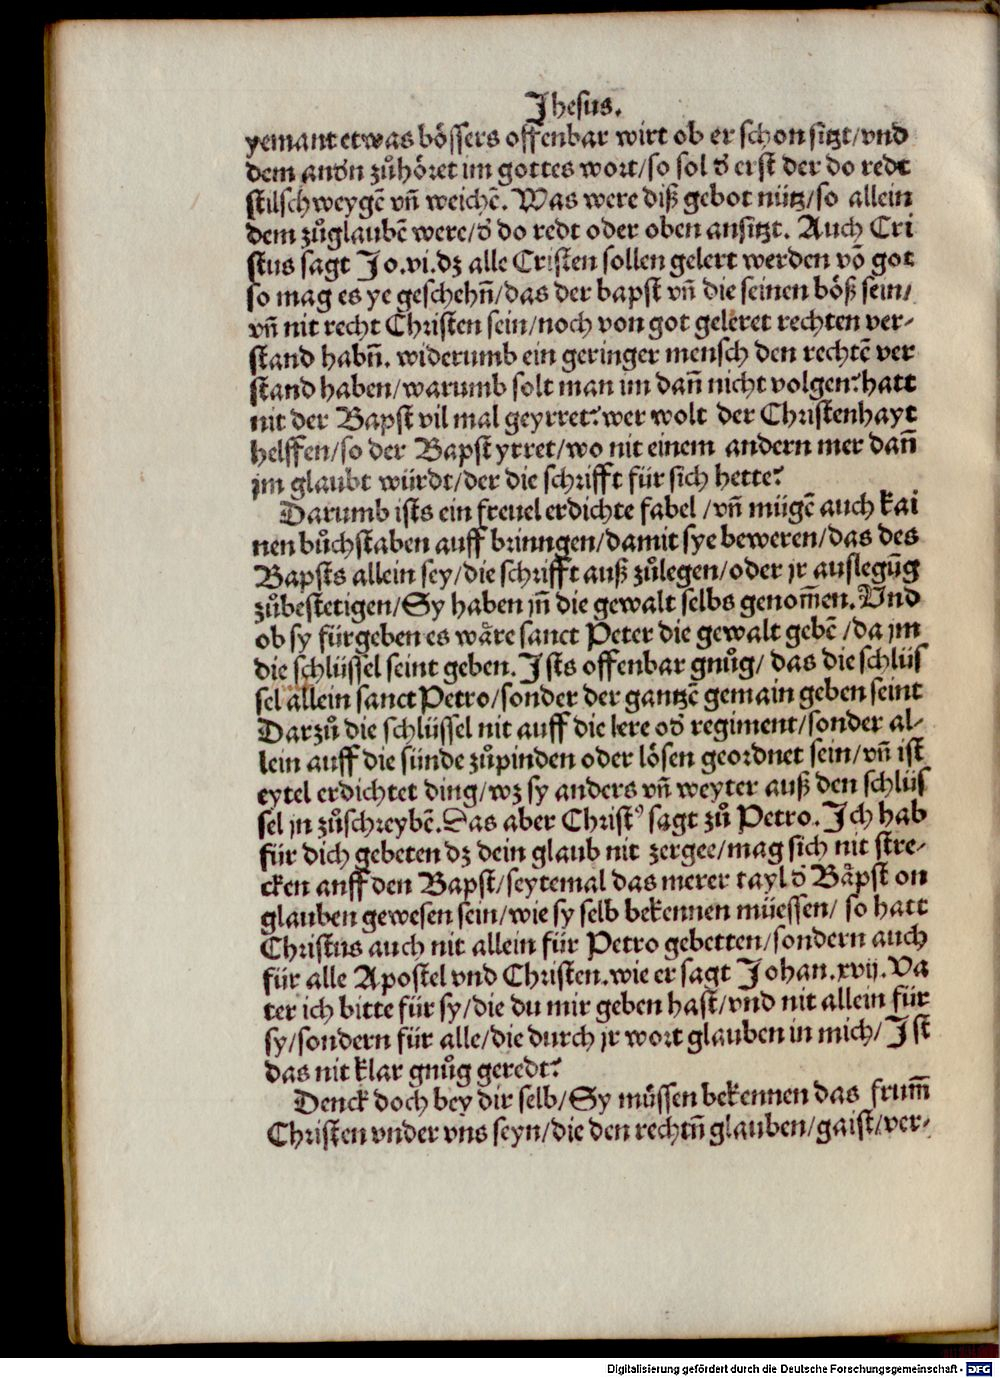 Jhesus.
yemant etwas bössers offenbar wirt ob er schon sitzt/vnd
dem andn̄ zůhöret im gottes wort/so sol d̓ erst der do redt
stilschweygē vn̄ weichē. Was were diß gebot nütz/so allein
dem zůglaubē were/d̓ do redt oder oben ansitzt. Auch Cri
stus sagt Jo.vi.dz alle Cristen sollen gelert werden vō got
so mag es ye geschehn̄/das der bapst vn̄ die seinen böß sein/
vn̄ nit recht Christen sein/noch von got geleret rechten ver-
stand habn̄. widerumb ein geringer mensch den rechtē ver
stand haben/warumb solt man im dan̄ nicht volgen? hatt
nit der Bapst vil mal geyrret? wer wolt der Christenhayt
helffen/so der Bapst yrret/wo nit einem andern mer dan̄
jm glaubt würdt/der die schrifft für sich hette?
Darumb ists ein freuel erdichte fabel/vn̄ mügē auch kai
nen bůchstaben auff brinngen/damit sye beweren/das des
Bapsts allein sey/die schrifft auß zůlegen/oder jr auslegūg
zůbestetigen/Sy haben jn̄ die gewalt selbs genom̄en. Vnd
ob sy fürgeben es wåre sanct Peter die gewalt gebē/da jm
die schlüssel seint geben. Jsts offenbar gnůg/das die schlüs
sel allein sanct Petro/sonder der gantzē gemain geben seint
Darzů die schlüssel nit auff die lere od̓ regiment/sonder al-
lein auff die sünde zůpinden oder lösen geordnet sein/vn̄ ist
eytel erdichtet ding/wz sy anders vn̄ weyter auß den schlüs
sel jn zůschreybē. Das aber Christ⁹ sagt zů Petro. Jch hab
für dich gebeten dz dein glaub nit zergee/mag sich nit stre-
cken anff den Bapst/seytemal das merer tayl d̓ Båpst on
glauben gewesen sein/wie sy selb bekennen müessen/so hatt
Christus auch nit allein für Petro gebetten/sondern auch
für alle Apostel vnd Christen. wie er sagt Johan.xvij. Va
ter ich bitte für sy/die du mir geben hast/vnd nit allein für
sy/sondern für alle/die durch jr wort glauben in mich/Jst
das nit klar gnůg geredt?
Denck doch bey dir selb/Sy müssen bekennen das frum̄
Christen vnder vns seyn/die den rechtn̄ glauben/gaist/ver-
Digitalisierung gefördert durch die Deutsche Forschungsgemeinschaft - DFG